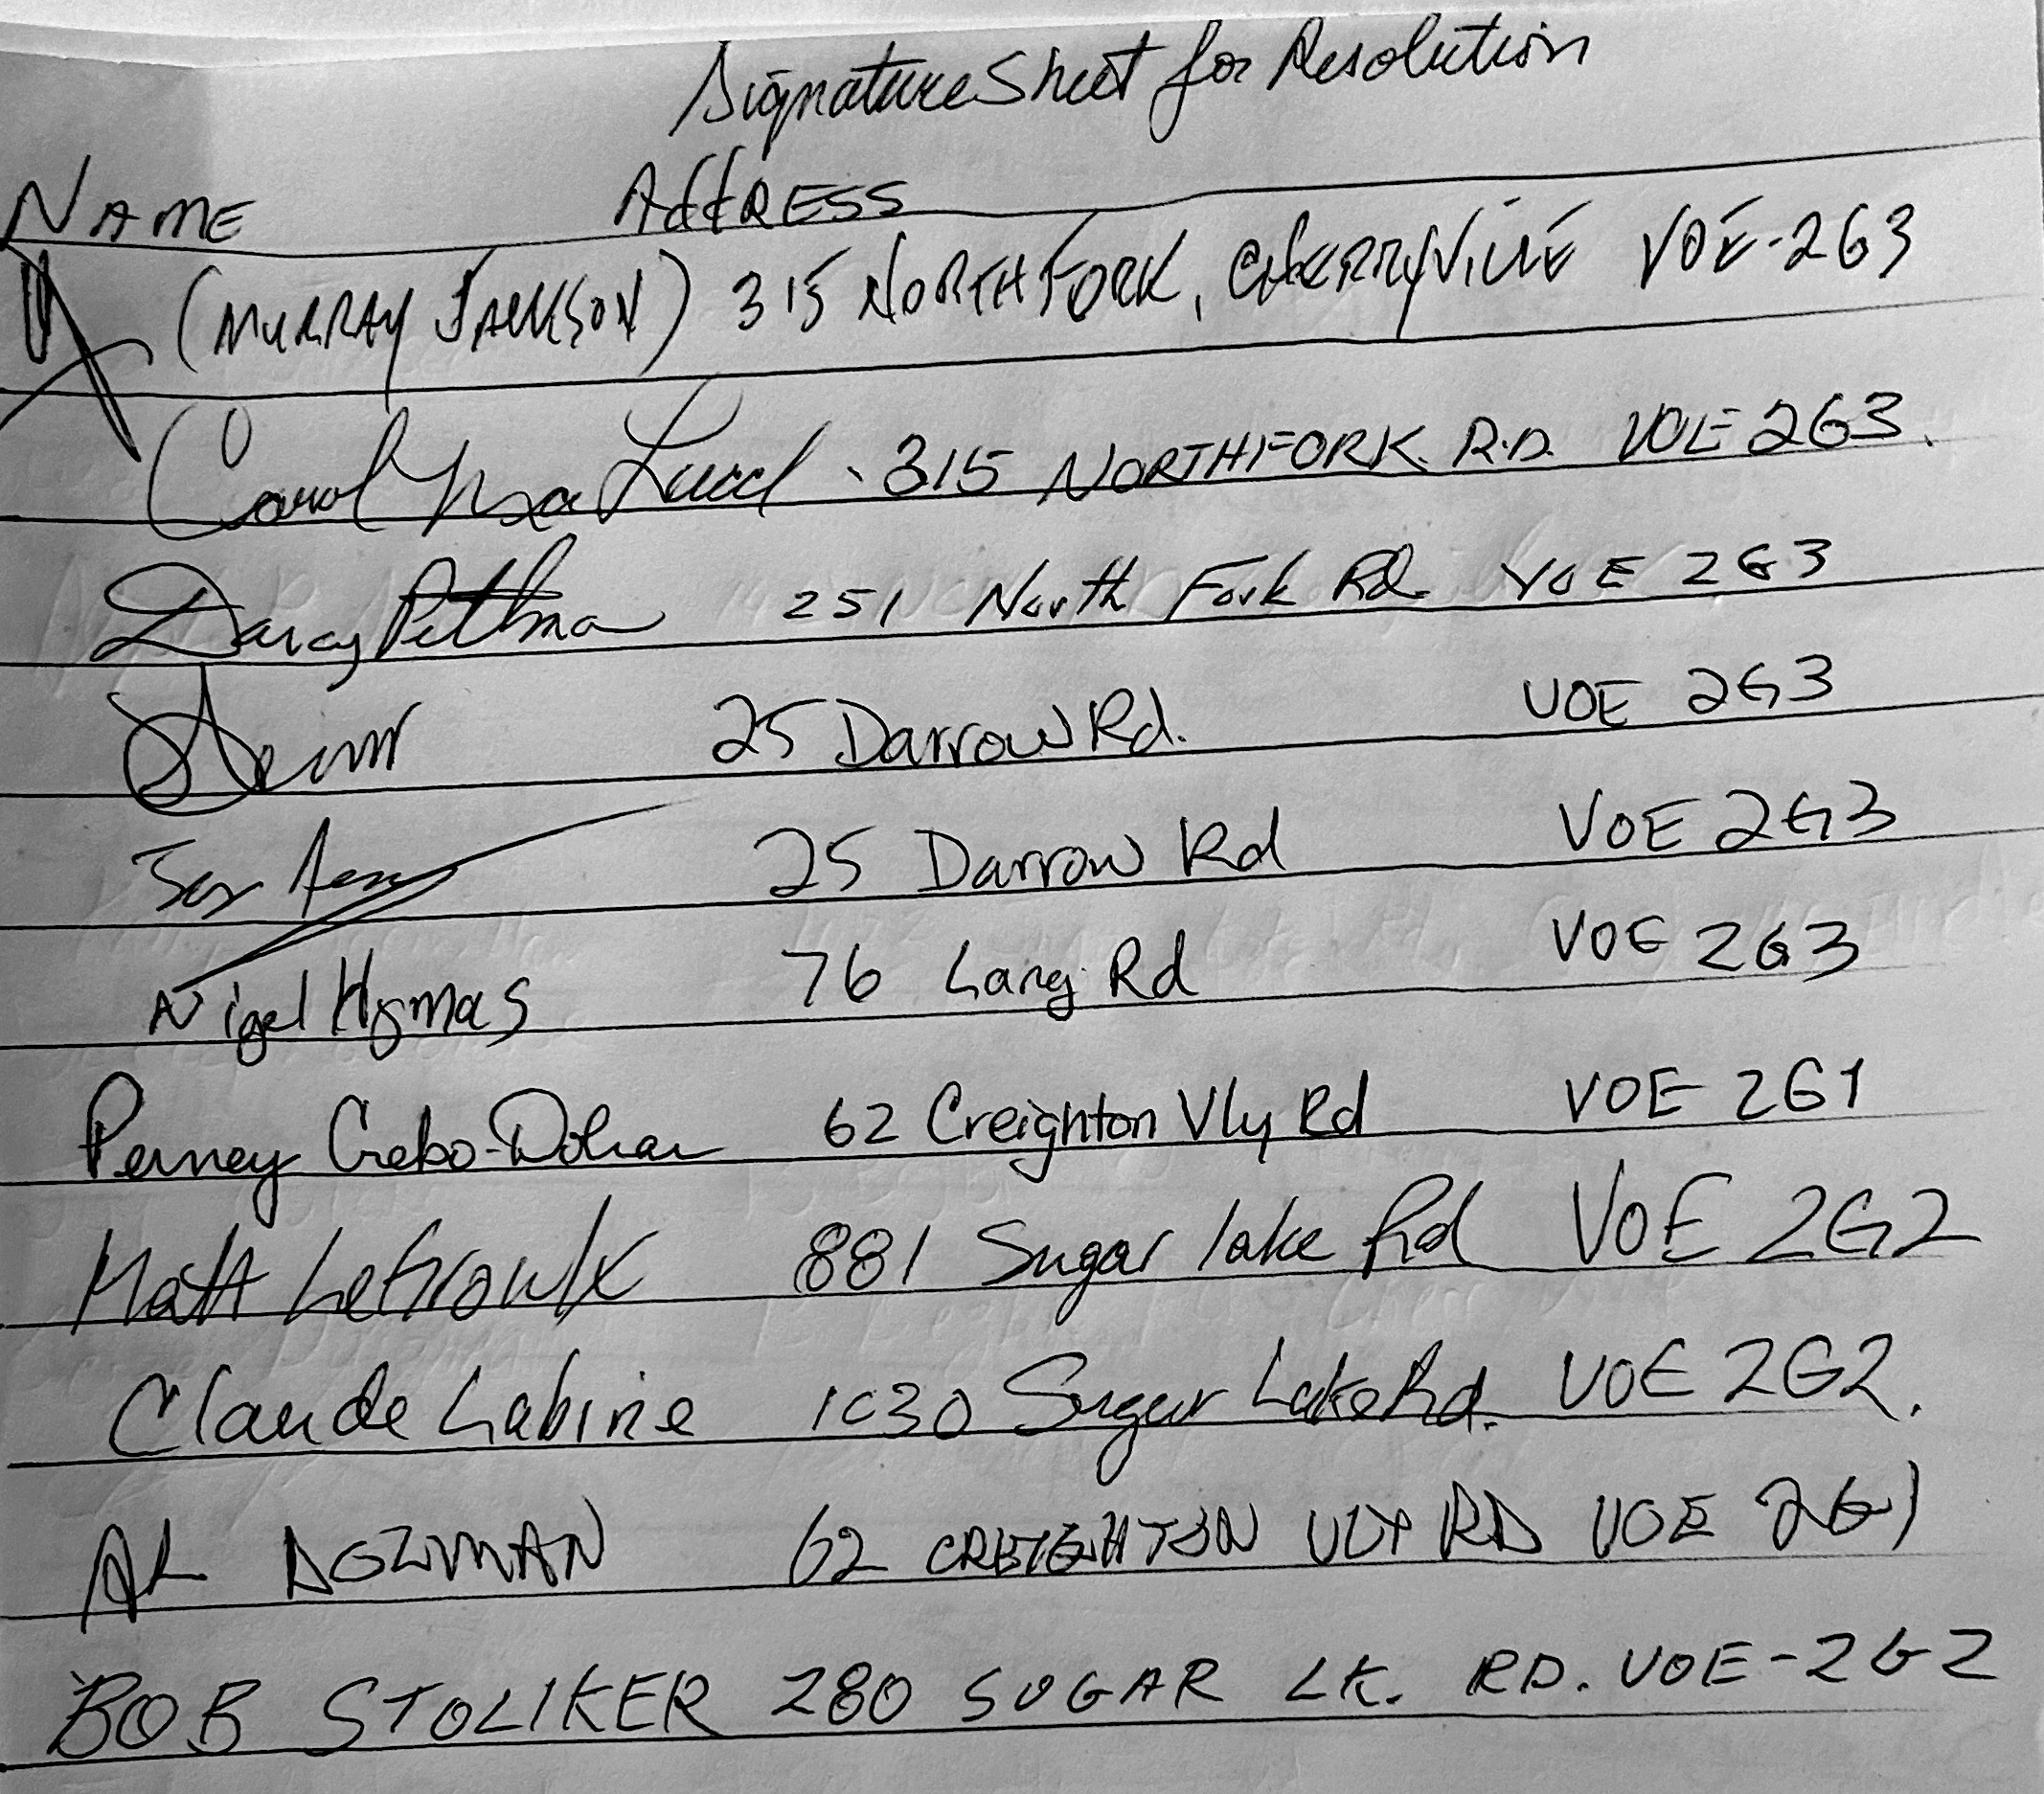 Signature Sheet for Resolution
NAME AddRESS
(MURRAY JACKSON) 315 NORTH FORK, CHERRYVILLE V0E-2G3
Carol Mac Leod 315 NORTHFORK R.D. V0E 2G3.
Darcy 251 North Fork Rd. V0E 2G3
25 Darrow Rd. V0E 2G3
25 Darrow Rd V0E 2G3
Nigel Hymas 76 Lang Rd V0E 2G3
Penney Crebo-Dolman 62 Creighton Vly Rd V0E 2G1
Matt 881 Sugar lake Rd V0E 2G2
Claude Labine 1030 Sugar Lake Rd. V0E 2G2.
AL 62 CREIGHTON VLY RD V0E 2G1
BOB STOLIKER 280 SUGAR LK. RD. V0E-2G2